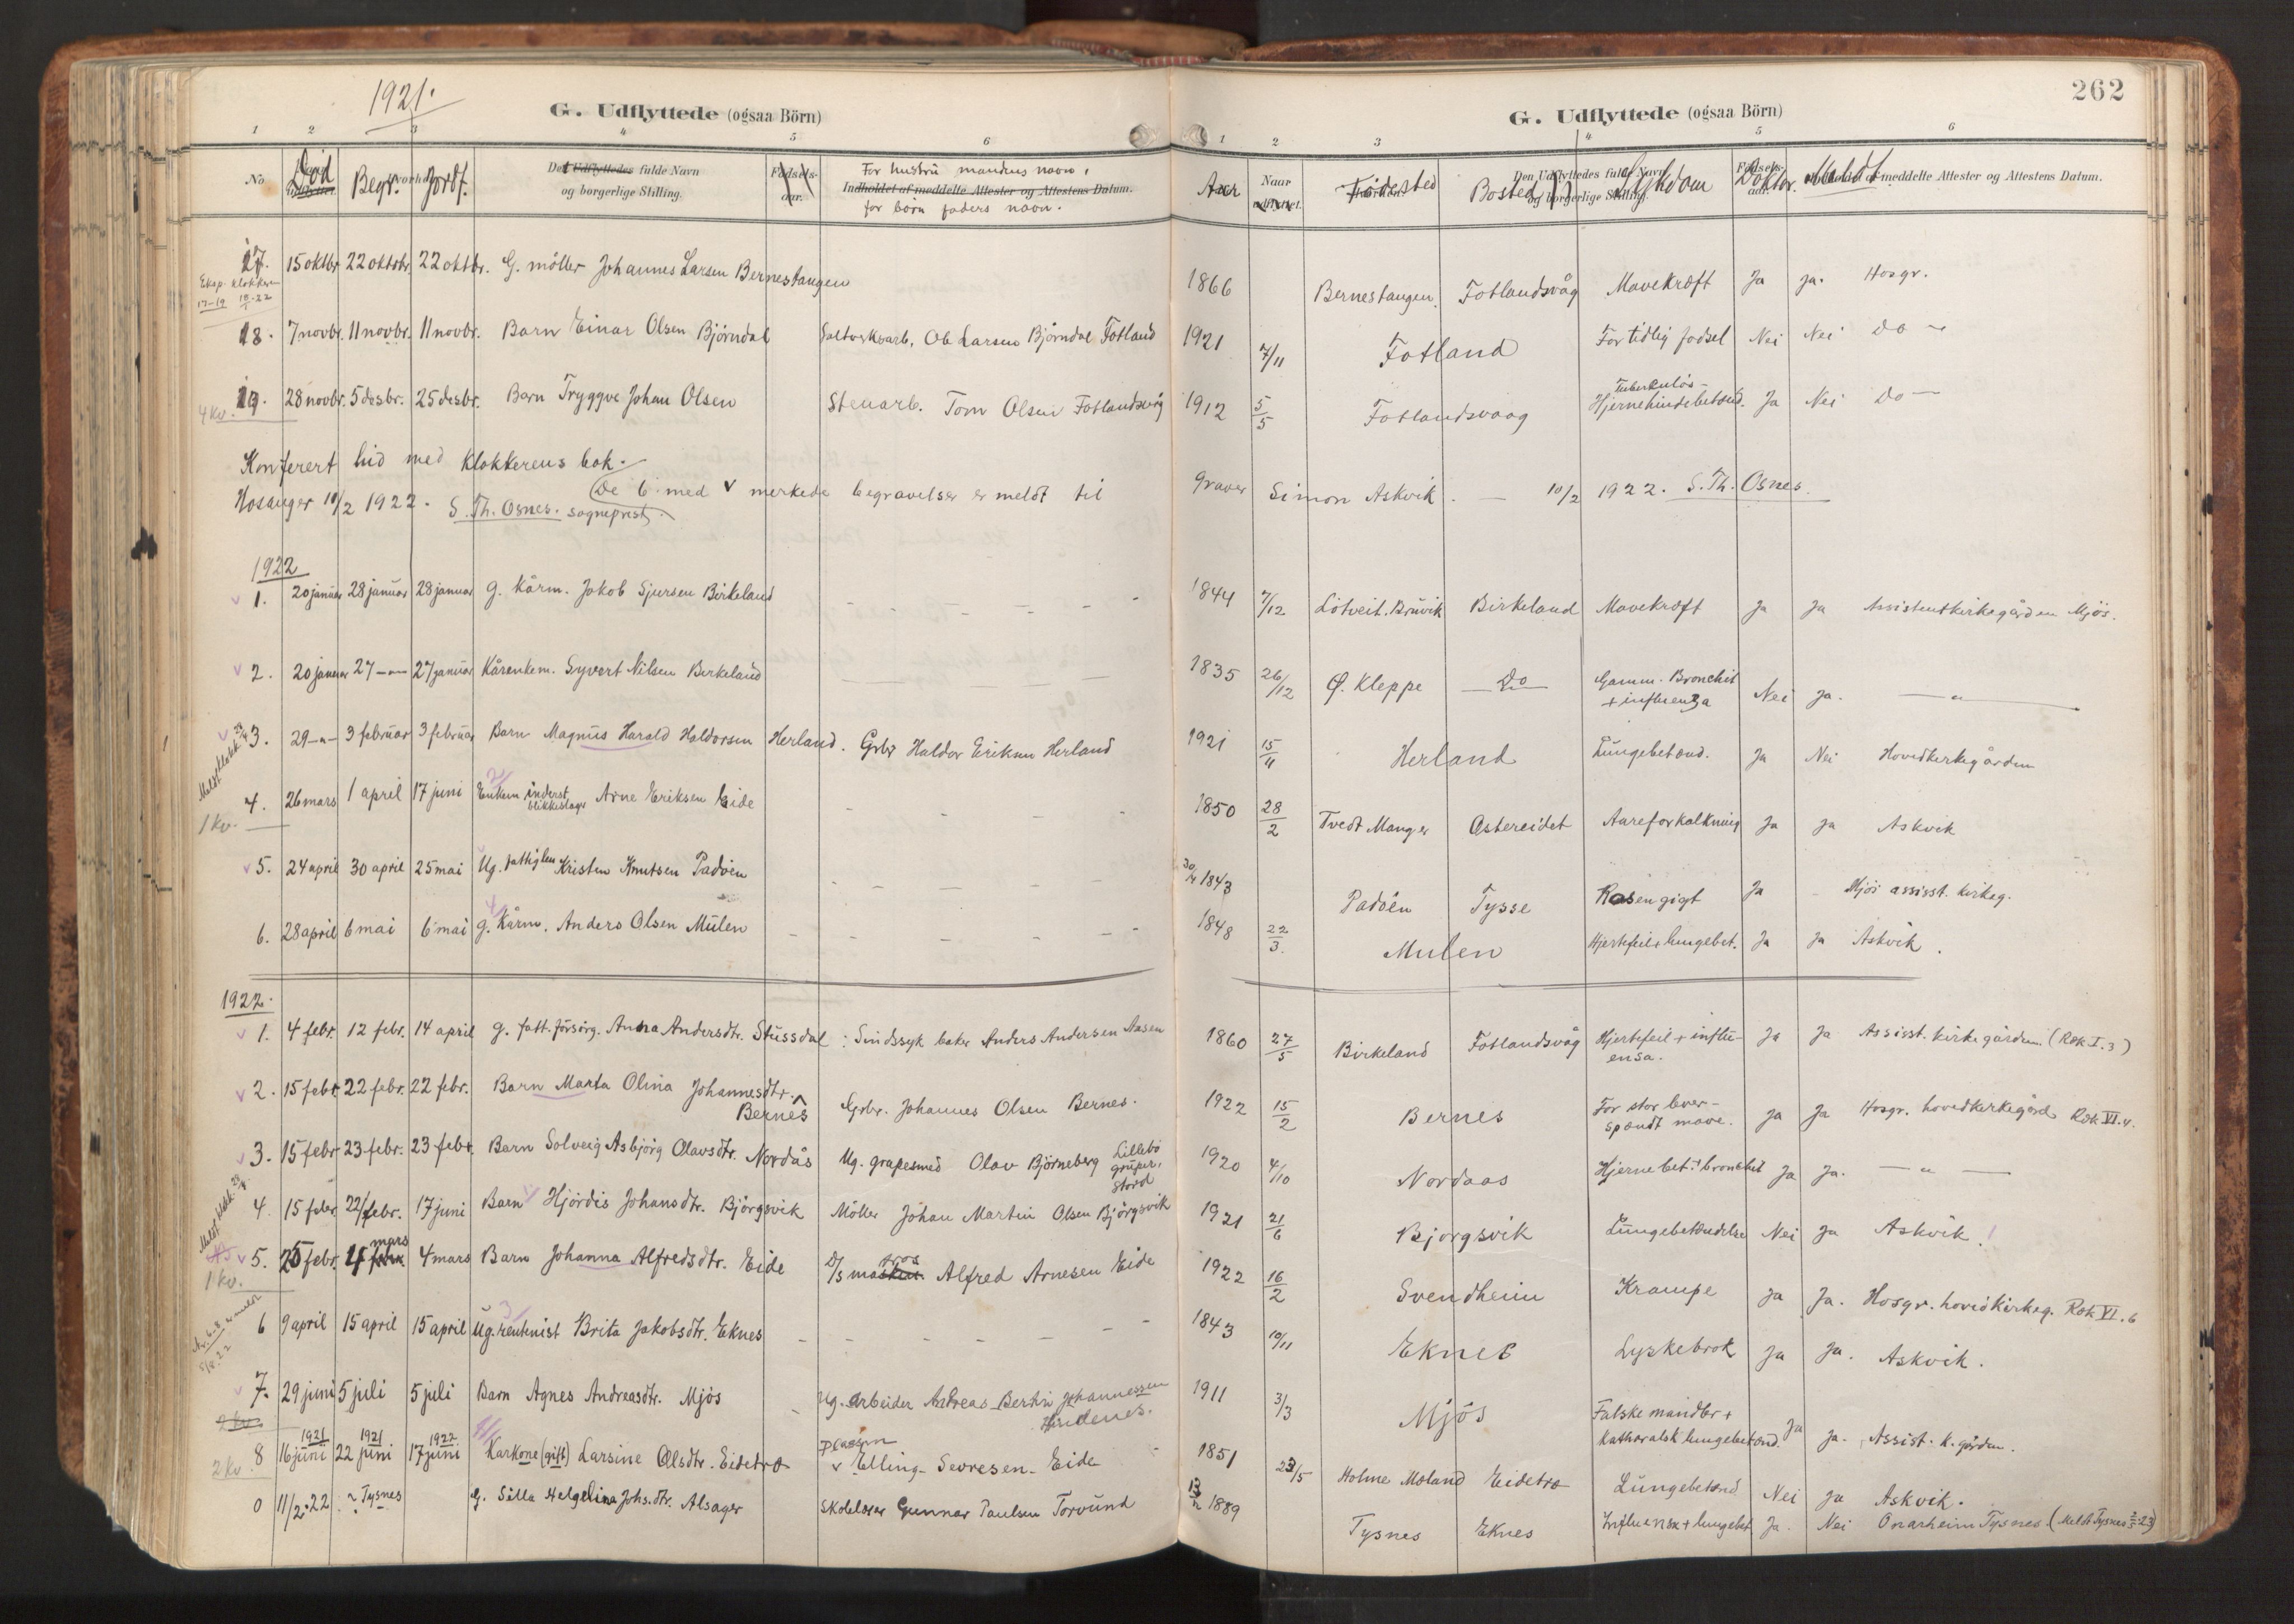 1921.
262
G. Udflyttede (ogsaa Börn)
G. Udflyttede (ogsaa Börn)
1 2 3 4 5 6
1 2 3 4 5 6
No Död Begr. Jordf. Det Udflyttedes fulde Navn og borgerlige Stilling. Fødsels-aar. For hustru mandens navn, Indholdet af meddelte Attester og Attestens Datum. for börn faders navn.
Aar Naar udflyttet. Födested Bosted Den Udflyttedes fulde Navn og borgerlige Stilling. Sykdom Fødsels-aar. Doktor. Meldt Indholdet af meddelte Attester og Attestens Datum.
17. 15 oktbr. 22 oktobr. 22 oktbr. G. möller Johannes Larsen Bernestangen 1866 Bernestangen Fotlandsvåg Mavekræft Ja ja. Hosgr.
Eksp. klokker
18. 7 novbr. 11 novbr. 11 novbr. Barn Einar Olsen Björndal Ole Larsen Björndal Fotland 1921 7/11 Fotland For tidlig fødsel Nei Nei Do
19. 28 novbr. 5 desbr. 25 desbr. Barn Tryggve Johan Olsen Stenarb. Tom Olsen Fotlandsvåg 1912 5/5 Fotlandsvaag Tuberkulös Hjernehindebetænd. Ja Nei Do
4 kv.
Konferert hid med klokkerens bok.
Hosanger 10/2 1922. S. Th. Osnes. sogneprest. De 6 med v merkede begravelser er meldt til Graver Simon Askvik. — 10/2 1922. S. Th. Osnes.
1922
v 1. 20 januar 28 januar 28 januar g. kårm. Jakob Sjursen Birkeland 1844 7/12 Lötveit. Bruvik Birkeland Mavekræft Ja Ja Assistentkirkegården Mjös.
v 2. 20 januar 27 —"— 27 januar Kårenkem. Syvert Nilsen Birkeland 1835 26/12 Ø. Kleppe Do Gamm. Bronchit + influenza Nei ja. — " —
v 3. 29 —"— 3 februar 3 februar Barn Magnus Harald Haldorsen Herland. Grbr Haldor Eriksen Herland 1921 15/11 Herland Lungebetænd. Ja Nei Hovedkirkegården
Meldt klokk.
4. 26 mars 1 april 17 juni Enkem. inderst blikkeslager Arne Eriksen Eide 1850 28/2 Tvedt Manger Ostereidet Aareforkalkning Ja ja Askvik
1 kv.
v 5. 24 april 30 april 25 mai Ug. fattiglem Kristen Knutsen Padöen 30/4 1843 Padöen Tysse Rosengigt Ja Mjös assisst. kirkeg.
6. 28 april 6 mai 6 mai g. kårm. Anders Olsen Mulen 1848 22/3. Mulen Hjertefeil + lungebet. Ja Ja Askvik.
1922.
v 1. 4 febr. 12 febr. 14 april g. fatt. forsörg. Anna Andersdtr. Stussdal : Sindssyk baker Anders Andersen Aasen 1860 27/5 Birkeland Fotlandsvåg Hjertefeil + influensa. Ja Ja Assisst. kirkegården. (Rek I. 3)
v 2. 15 febr. 22 febr. 22 febr. Barn Marta Olina Johannesdtr. Bernes Grbr. Johannes Olsen Bernes. 1922 15/2 Bernes For stor lever- spændt mave. Ja Ja Hosgr. hovedkirkegård Rek VI. 4.
v 3. 15 febr 23 febr. 23 febr. Barn Solveig Asbjörg Olavsdtr. Nordås Ug. grapesmed Olav Björneberg Lillebö gruber, Stord 1920 4/10 Nordaas Hjernebet. + bronchit Ja Ja. — " —
Meldt klokk.
4. 15 febr 22/febr. 17 juni Barn Hjördis Johansdtr. Björgsvik Möller Johan Martin Olsen Björgsvik 1921 21/6 Bjorgsvik Lungebetændelse Nei Ja Askvik!
v 5. 25 febr. 4 mars 4 mars Barn Johanna Alfredsdtr. Eide D/s matros Alfred Arnesen Eide 1922 16/2 Svendheim Krampe Ja Ja. Hosgr. hovedkirkeg. Rek VI. 6
1 kv.
6 9 april 15 april 15 april Ug. rentenist Brita Jakobsdtr. Eknes 1843 10/11 Eknes Lyskebrok Ja Ja. Askvik.
v 7. 29 juni 5 juli 5 juli Barn Agnes Andreasdtr. Mjös Ug. arbeider Andreas Bertin Johannessen Hindenes. 1911 3/3 Mjös Falske mandler + katharalsk lungebetænd. Ja ja. Assist. k. gården.
2 kv.
8 16 juni 1921 22 juni 1921 17 juni 1922 Karkone (gift) Larsine Olsdtr. Eidetræ Plassm v Elling Sevresen Eide 1851 23/5 Holme Moland Eidetræ Lungebetænd Nei Ja Askvik.
2 kv.
0 11/2.22 ? Tysnes g. Silla Helgelina Johs.dtr. Alsager Skolelærer Gunnar Paulsen Torvund 13/2 1889 Tysnes Eknes Influensa + lungebet Ja. Nei Onarheim Tysnes. (Meldt Tysnes 2/3 23)